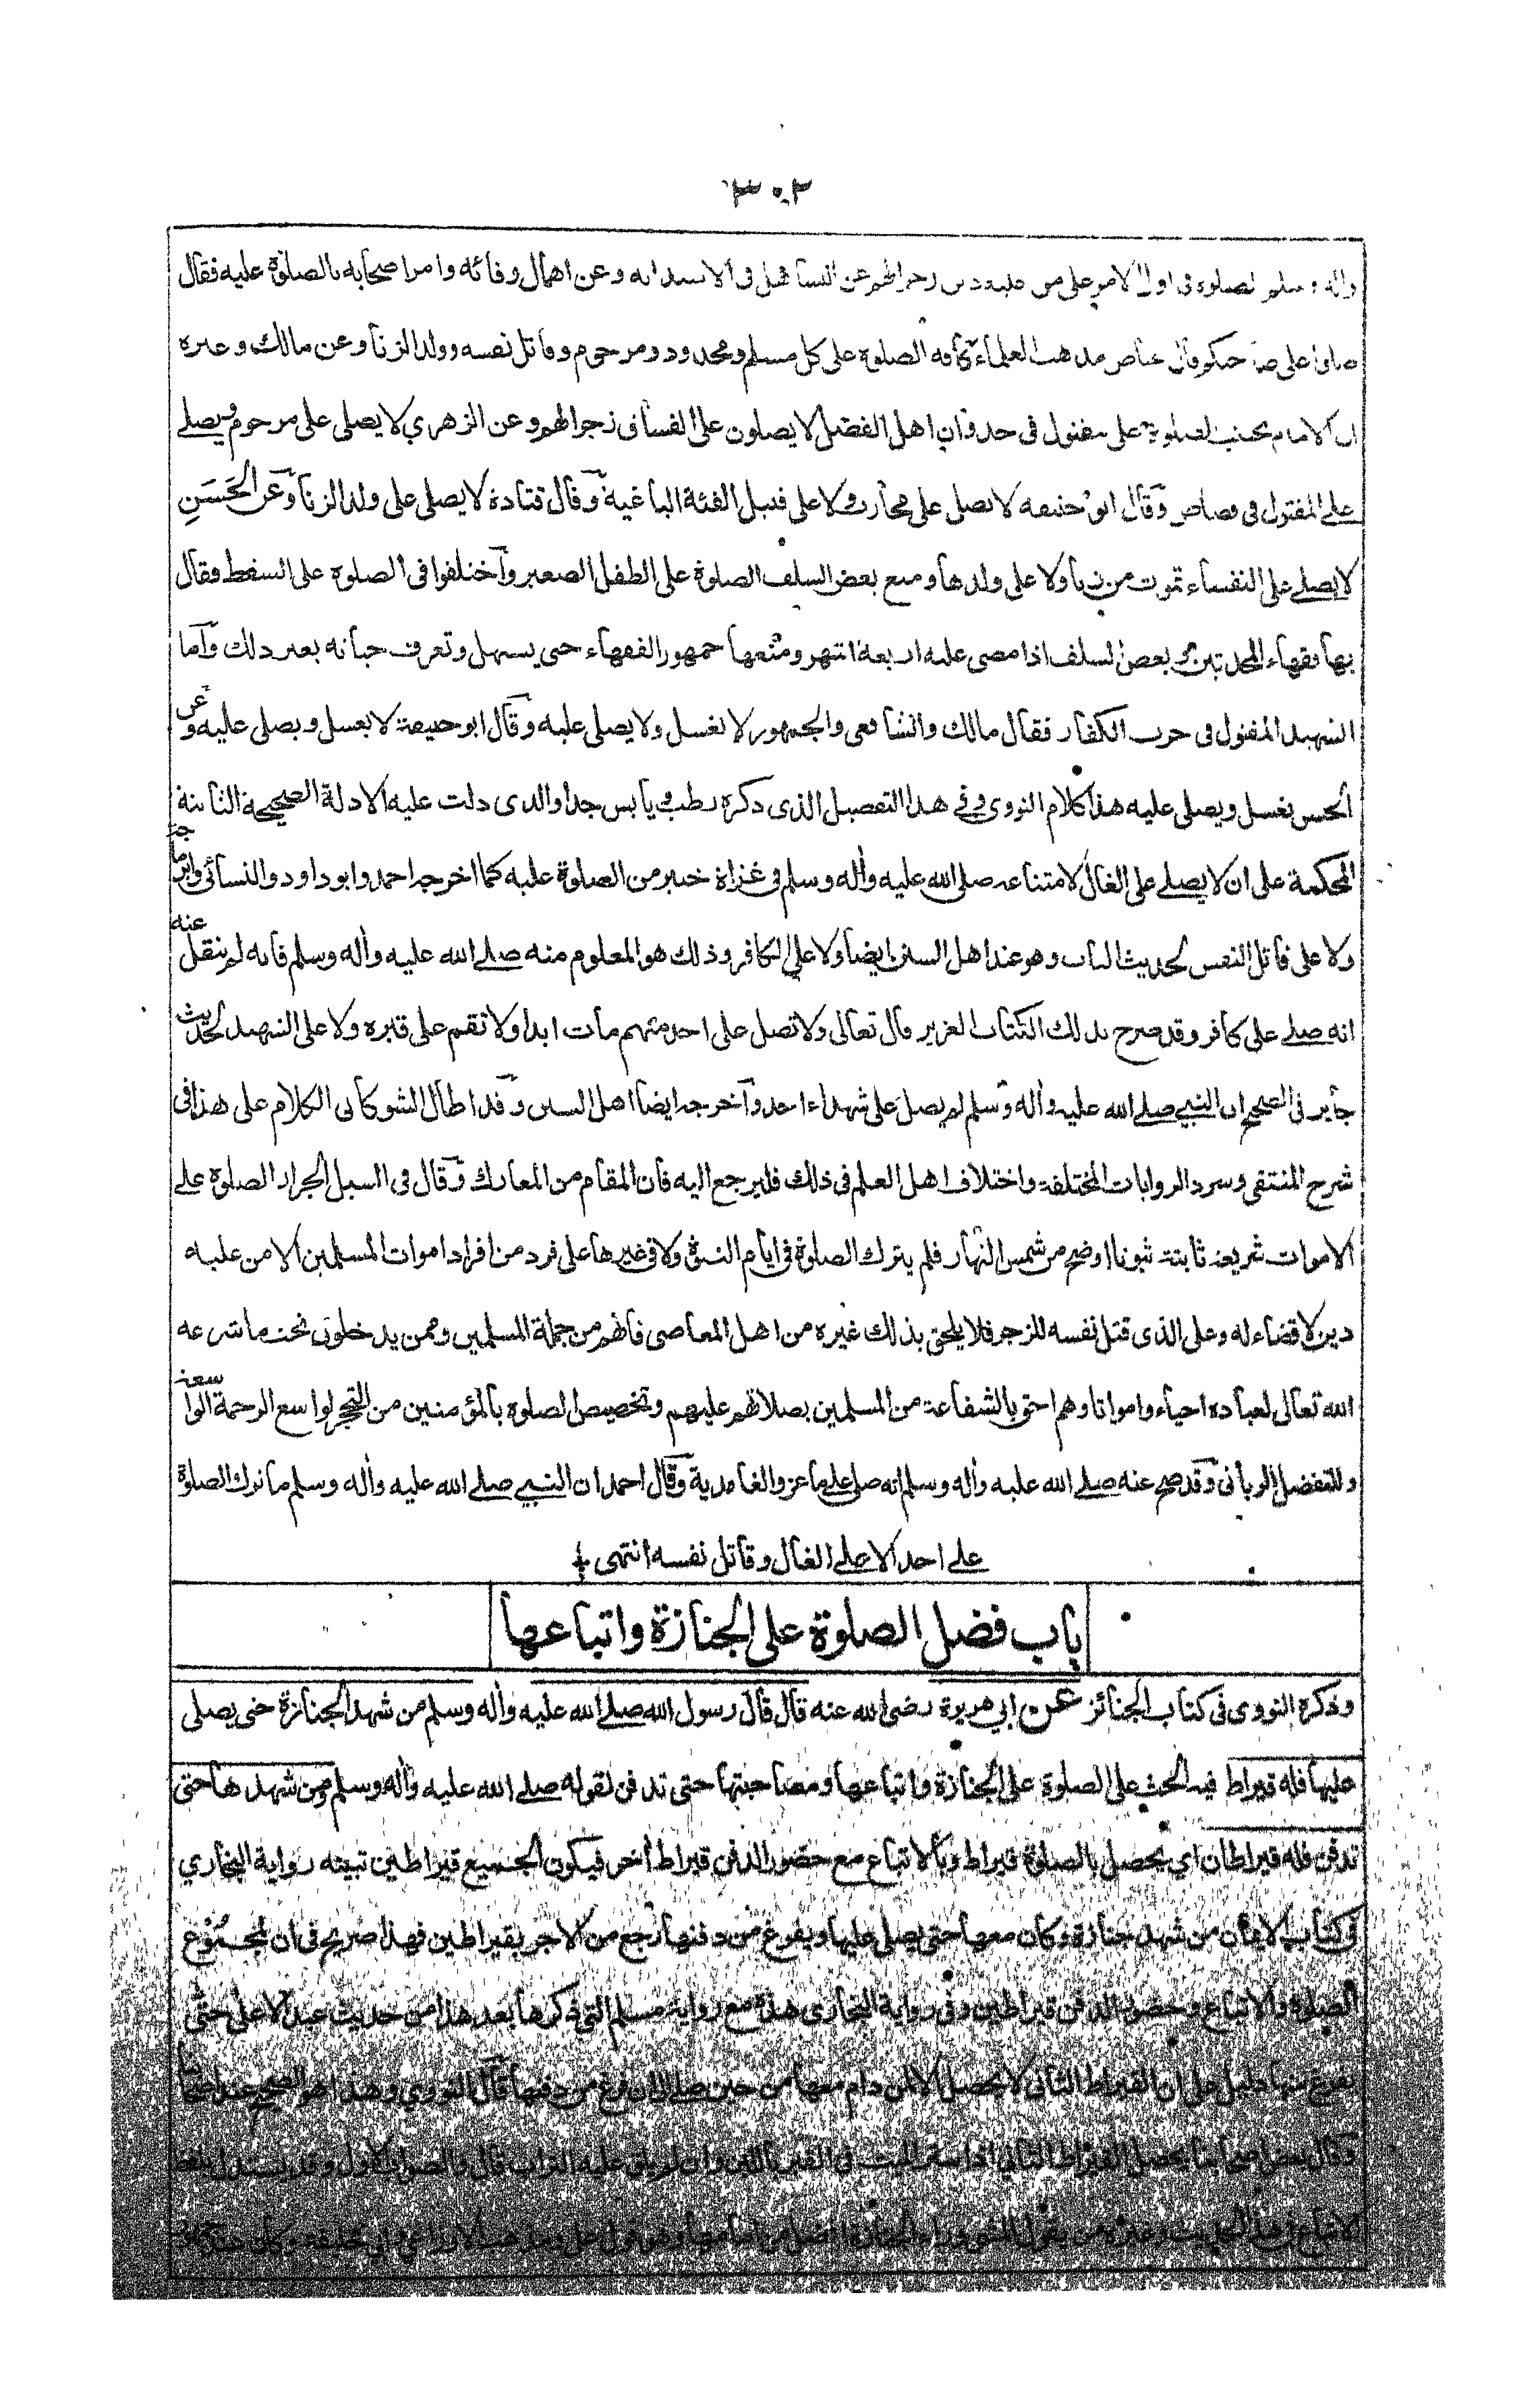 ٣٠٢
واله وسلم الصلوة فى اول الامر على من عليه دين زجرا لهم عن التساهل فى الاستدانة وعن اهمال وفائه وامر اصحابه بالصلوة عليه فقال
صلوا على صاحبكم قال عياض مذهب العلماء كافة الصلوة على كل مسلم ومحدود ومرجوم وقاتل نفسه وولد الزنا وعن مالك وغيره
ان الامام يجتنب الصلوة على مقتول فى حد وان اهل الفضل لا يصلون على الفساق زجرا لهم وعن الزهري لا يصلى على مرجوم ويصلے
على المقتول فى قصاص وقال ابو حنيفه لا يصلى على محارب ولا على قتيل الفئة الباغية وقال قتادة لا يصلى على ولد الزنا وعن الحَسَنِ
لا يصلے على النفساء تموت من زنا ولا على ولدها ومنع بعض السلف الصلوة على الطفل الصغير واختلفوا فى الصلوة على السقط فقال
بها فقهاء المحدثين وبعض السلف اذا مضى عليه اربعة اشهر ومنعها جمهور الفقهاء حتى يستهل وتعرف حياته بغير ذلك وآما
الشهيد المقتول فى حرب الكفار فقال مالك والشافعى والجمهور لا يغسل ولا يصلى عليه وقال ابو حنيفة لا يغسل ويصلى عليه وعن
الحسن يغسل ويصلى عليه هذا كلام النووى وفى هذا التفصيل الذى ذكره رطب ويابس جدا والذى دلت عليه الادلة الصحيحة الثابتة
المحكمة على ان لا يصلے على الغال لامتناعه صلى الله عليه واٰله وسلم فى غزاة خيبر من الصلوة عليه كما اخرجه احمد وابو داود والنسائى وابن ماجه
ولا على قاتل النفس لحديث الباب وهو عند اهل السنن ايضا ولا على الكافر وذلك هو المعلوم منه صلے الله عليه واٰله وسلم فانه لم ينقل عنه
انه صلے على كافر وقد صرح بذلك الكتاب العزيز قال تعالى ولا تصل على احد منهم مات ابدا ولا تقم على قبره ولا على الشهيد لحديث
جابر فى الصحيح ان النبي صلے الله عليه واٰله وسلم لم يصل على شهداء احد وآخرجه ايضا اهل السنن وقد اطال الشوكانى الكلام على هذا فى
شرح المنتقى وسرد الروايات المختلفة واختلاف اهل العلم فى ذلك فليرجع اليه فان المقام من المعارك وقال فى السيل الجرار الصلوة على
الاموات شريعة ثابتة ثبوتا اوضح من شمس النهار فلم يترك الصلوة فى ايام النبوة ولا فى غيرها على فرد من افراد اموات المسلمين الا من عليه
دين لا قضاء له وعلى الذى قتل نفسه للزجر فلا يلحق بذلك غيره من اهل المعاصى فانهم من جملة المسلمين وممن يدخلون تحت ما شرعه
الله تعالى لعباده احياء وامواتا وهم احق بالشفاعة من المسلمين بصلاتهم عليهم وتخصيص الصلوة بالمؤمنين من التحجر لواسع الرحمة الواسعة
وللتفضل الربانى وقد صح عنه صلے الله عليه واٰله وسلم انه صلى على ماعز والغامدية وقال احمد ان النبي صلے الله عليه واٰله وسلم ما ترك الصلوة
على احد الا على الغال وقاتل نفسه انتهى
باب فضل الصلوة على الجنازة واتباعها
وذكره النووى فى كتاب الجنائز عن ابي هريرة رضى الله عنه قال قال رسول الله صلے الله عليه واٰله وسلم من شهد الجنازة حتى يصلى
عليها فله قيراط فيه الحث على الصلوة على الجنازة واتباعها ومصاحبتها حتى تدفن لقوله صلے الله عليه واٰله وسلم ومن شهدها حتى
تدفن فله قيراطان اي يحصل بالصلوة قيراط وبالاتباع مع حضور الدفن قيراط اٰخر فيكون الجميع قيراطين تبينه رواية البخاري
فى كتاب الايمان من شهد جنازة وكان معها حتى يصلى عليها ويفرغ من دفنها رجع من الاجر بقيراطين فهذا صريح فى ان المجموع
الصلوة والاتباع وحضور الدفن قيراطين وفى رواية البخارى هذه مع رواية مسلم التى ذكرها بعد هذا من حديث عبد الاعلى حتى
يفرغ منها دليل على ان القيراط الثانى لا يحصل الا لمن دام معها من حين صلى الى ان فرغ من دفنها قال النووي وهذا هو الصحيح عند اصحابنا
وقال بعض اصحابنا يحصل القيراط الثانى اذا ستر الميت فى القبر باللبن وان لم يلق عليه التراب قال والصواب الاول وقد يستدل بلفظ
الاتباع فى هذا الحديث وغيره من يقول المشى وراء الجنازة افضل من امامها وهو قول على ومذهب الاوزاعي وابي حنيفة